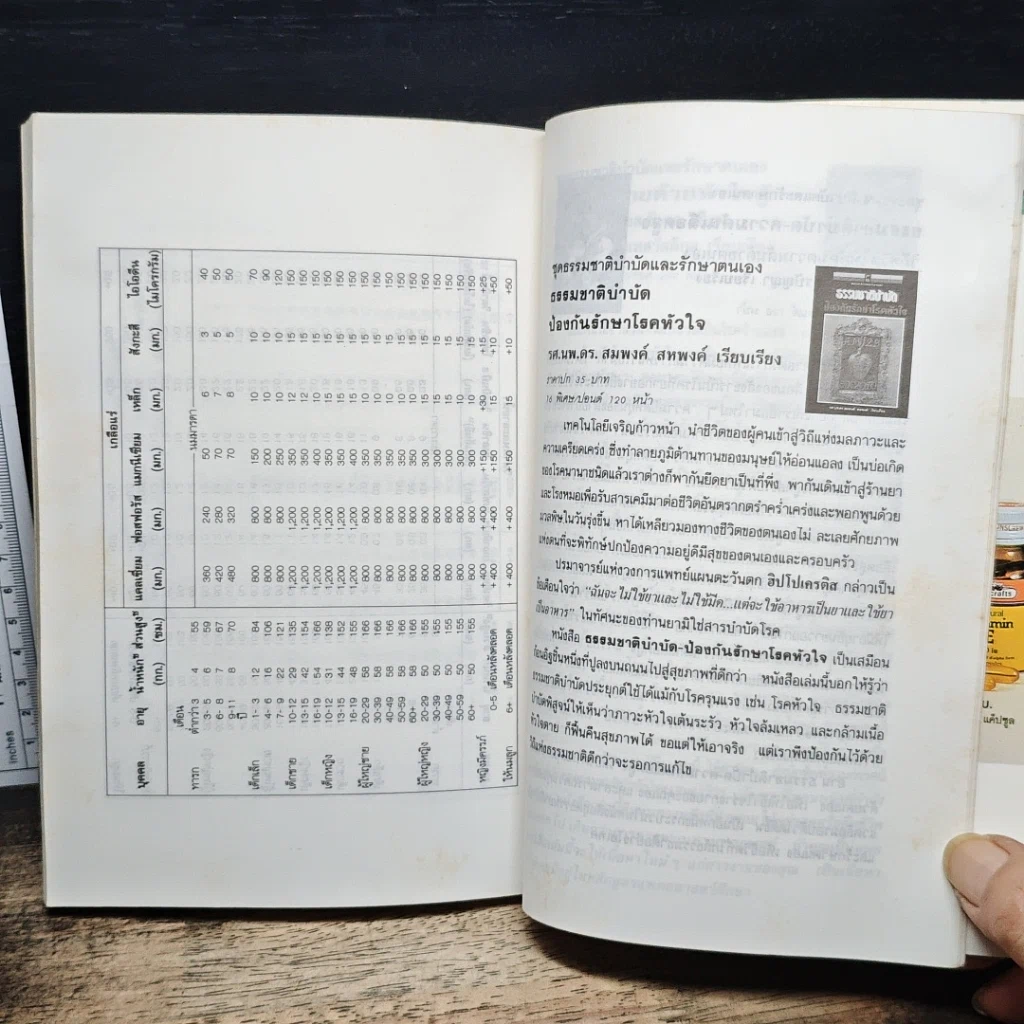 เกลือแร่
บุคคล อายุ น้ำหนัก ส่วนสูง แคลเซี่ยม ฟอสฟอรัส แมกนีเซียม เหล็ก สังกะสี ไอโอดีน
(กก.) (ซม.) (มก.) (มก.) (มก.) (มก.) (มก.) (ไมโครกรัม)
เดือน นมมารดา
ทารก ต่ำกว่า 3 4 55
3- 5 6 59 360 240 50 6 3 40
6- 8 7 67 420 280 70 7 5 50
9-11 8 70 480 320 70 8 5 50
ปี
เด็กเล็ก 1- 3 12 84 800 800 150 10 10 70
4- 6 106 800 800 200 10 10 90
7- 9 22 121 800 800 250 10 10 120
เด็กชาย 10-12 29 135 1,200 1,200 350 12 15 150
13-15 42 154 1,200 1,200 350 12 15 150
16-19 54 166 1,200 1,200 400 15 150
เด็กหญิง 10-12 31 138 1,200 1,200 15 15 150
13-15 44 152 1,200 1,200 15 15 150
16-19 48 155 1,200 1,200 15 15 150
ผู้ใหญ่ชาย 20-29 58 166 800 800 350 10 15 150
30-39 58 166 800 800 350 10 15 150
40-49 58 166 800 800 350 10 15 150
50-59 58 166 800 800 350 10 15 150
60+ 58 166 800 800 350 10 15 150
ผู้ใหญ่หญิง 20-29 50 155 800 800 300 15 15 150
30-39 50 155 800 800 300 15 15 150
40-49 50 155 800 800 300 15 15 150
50-59 50 155 800 800 300 10 15 150
60+ 50 155 800 800 300 10 15 150
หญิงมีครรภ์ +400 +400 +30 +15 +25
ให้นมลูก 0-5 เดือนหลังคลอด +400 +400 +150 15 +10 +50
6+ เดือนหลังคลอด +400 +400 +150 15 +10 +50
inches
ชุดธรรมชาติบำบัดและรักษาตนเอง
ธรรมชาติบำบัด
ป้องกันรักษาโรคหัวใจ
รศ.นพ.ดร. สมพงค์ สหพงค์ เรียบเรียง
ราคาปก 35 บาท
16 พิเศษ/ปอนด์ 120 หน้า
ธรรมชาติบำบัด
ป้องกันรักษาโรคหัวใจ
เทคโนโลยีเจริญก้าวหน้า นำชีวิตของผู้คนเข้าสู่วิถีแห่งมลภาวะและ
ความเครียดเคร่ง ซึ่งทำลายภูมิต้านทานของมนุษย์ให้อ่อนแอลง เป็นบ่อเกิด
ของโรคนานาชนิดแล้วเราต่างก็พากันยึดยาเป็นที่พึ่ง พากันเดินเข้าสู่ร้านยา
และโรงหมอเพื่อรับสารเคมีมาต่อชีวิตอันตรากตรำคร่ำเคร่งและพอกพูนด้วย
มวลพิษในวันรุ่งขึ้น หาได้เหลียวมองทางชีวิตของตนเองไม่ ละเลยศักยภาพ
แห่งตนที่จะพิทักษ์ปกป้องความอยู่ดีมีสุขของตนเองและครอบครัว
ปรมาจารย์แห่งวงการแพทย์แผนตะวันตก ฮิปโปเครติส กล่าวเป็น
ข้อเตือนใจว่า "ฉันจะไม่ใช้ยาและไม่ใช้มีด...แต่จะใช้อาหารเป็นยาและใช้ยา
เป็นอาหาร" ในทัศนะของท่านยามิใช่สารบำบัดโรค
หนังสือ ธรรมชาติบำบัด-ป้องกันรักษาโรคหัวใจ เป็นเสมือน
ก้อนอิฐชิ้นหนึ่งที่ปูลงบนถนนไปสู่สุขภาพที่ดีกว่า หนังสือเล่มนี้บอกให้รู้ว่า
ธรรมชาติบำบัดประยุกต์ใช้ได้แม้กับโรครุนแรง เช่น โรคหัวใจ ธรรมชาติ
บำบัดพิสูจน์ให้เห็นว่าภาวะหัวใจเต้นระรัว หัวใจล้มเหลว และกล้ามเนื้อ
หัวใจตาย ก็ฟื้นคืนสุขภาพได้ ขอแต่ให้เอาจริง แต่เราพึงป้องกันไว้ด้วย
วิถีแห่งธรรมชาติดีกว่าจะรอการแก้ไข
crafts
E
แค๊ปซูล